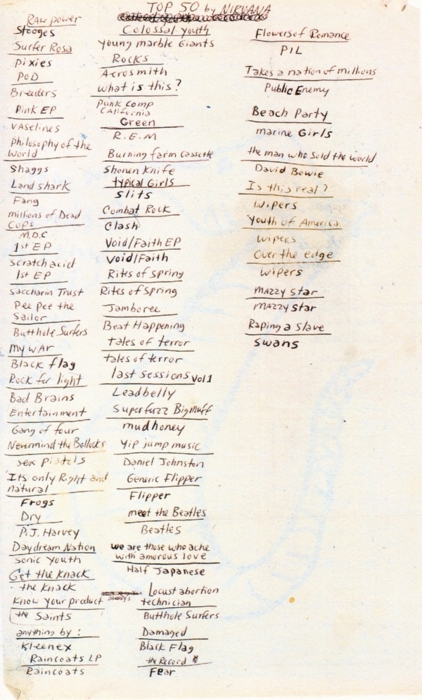 TOP 50 by NIRVANA
Raw power
Stooges
Surfer Rosa
Pixies
POD
Breeders
Pink EP
Vaselines
Philosophy of the
World
Shaggs
Land shark
Fang
millions of Dead
Cops
M.D.C
1st EP
Scratch acid
1st EP
Saccharin Trust
Pee Pee the
Sailor
Butthole Surfers
My WAr
Black flag
Rock for light
Bad Brains
Entertainment
Gang of four
Nevermind the Bollocks
sex pistols
Its only Right and
natural
Frogs
Dry
P.J. Harvey
Daydream Nation
Sonic Youth
Get the Knack
the Knack
Know your product
the Saints
anything by:
Kleenex
Raincoats LP
Raincoats
Colossal Youth
Young marble Giants
Rocks
Aerosmith
What is this?
Punk Comp
California
Green
R.E.M
Burning farm cassette
Shonen Knife
typical Girls
Slits
Combat Rock
Clash
Void/Faith EP
Void/Faith
Rites of Spring
Rites of Spring
Jamboree
Beat Happening
tales of terror
tales of terror
last sessions vol 1
Leadbelly
Superfuzz Bigmuff
mudhoney
Yip jump music
Daniel Johnston
Generic Flipper
Flipper
meet the Beatles
Beatles
we are those who ache
with amorous love
Half Japanese
Locust abortion
technician
Butthole Surfers
Damaged
Black Flag
the Record
Fear
Flowers of Romance
PIL
Takes a nation of millions
Public Enemy
Beach Party
marine Girls
the man who Sold the world
David Bowie
Is this real?
Wipers
Youth of America
Wipers
Over the edge
Wipers
MAZZY STAR
MAZZY STAR
Raping a Slave
Swans